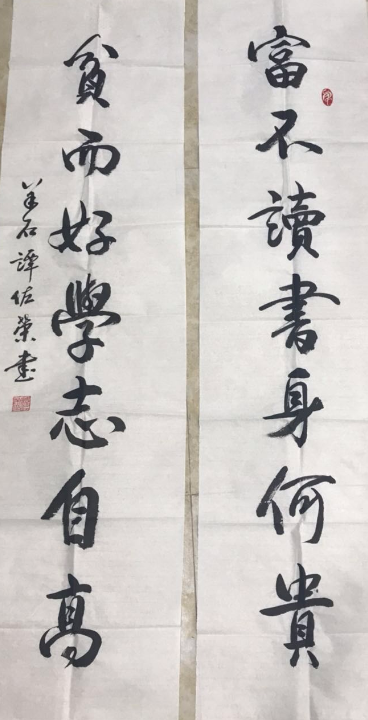 富不讀書身何貴
貧而好學志自高
羊石譚佐榮書